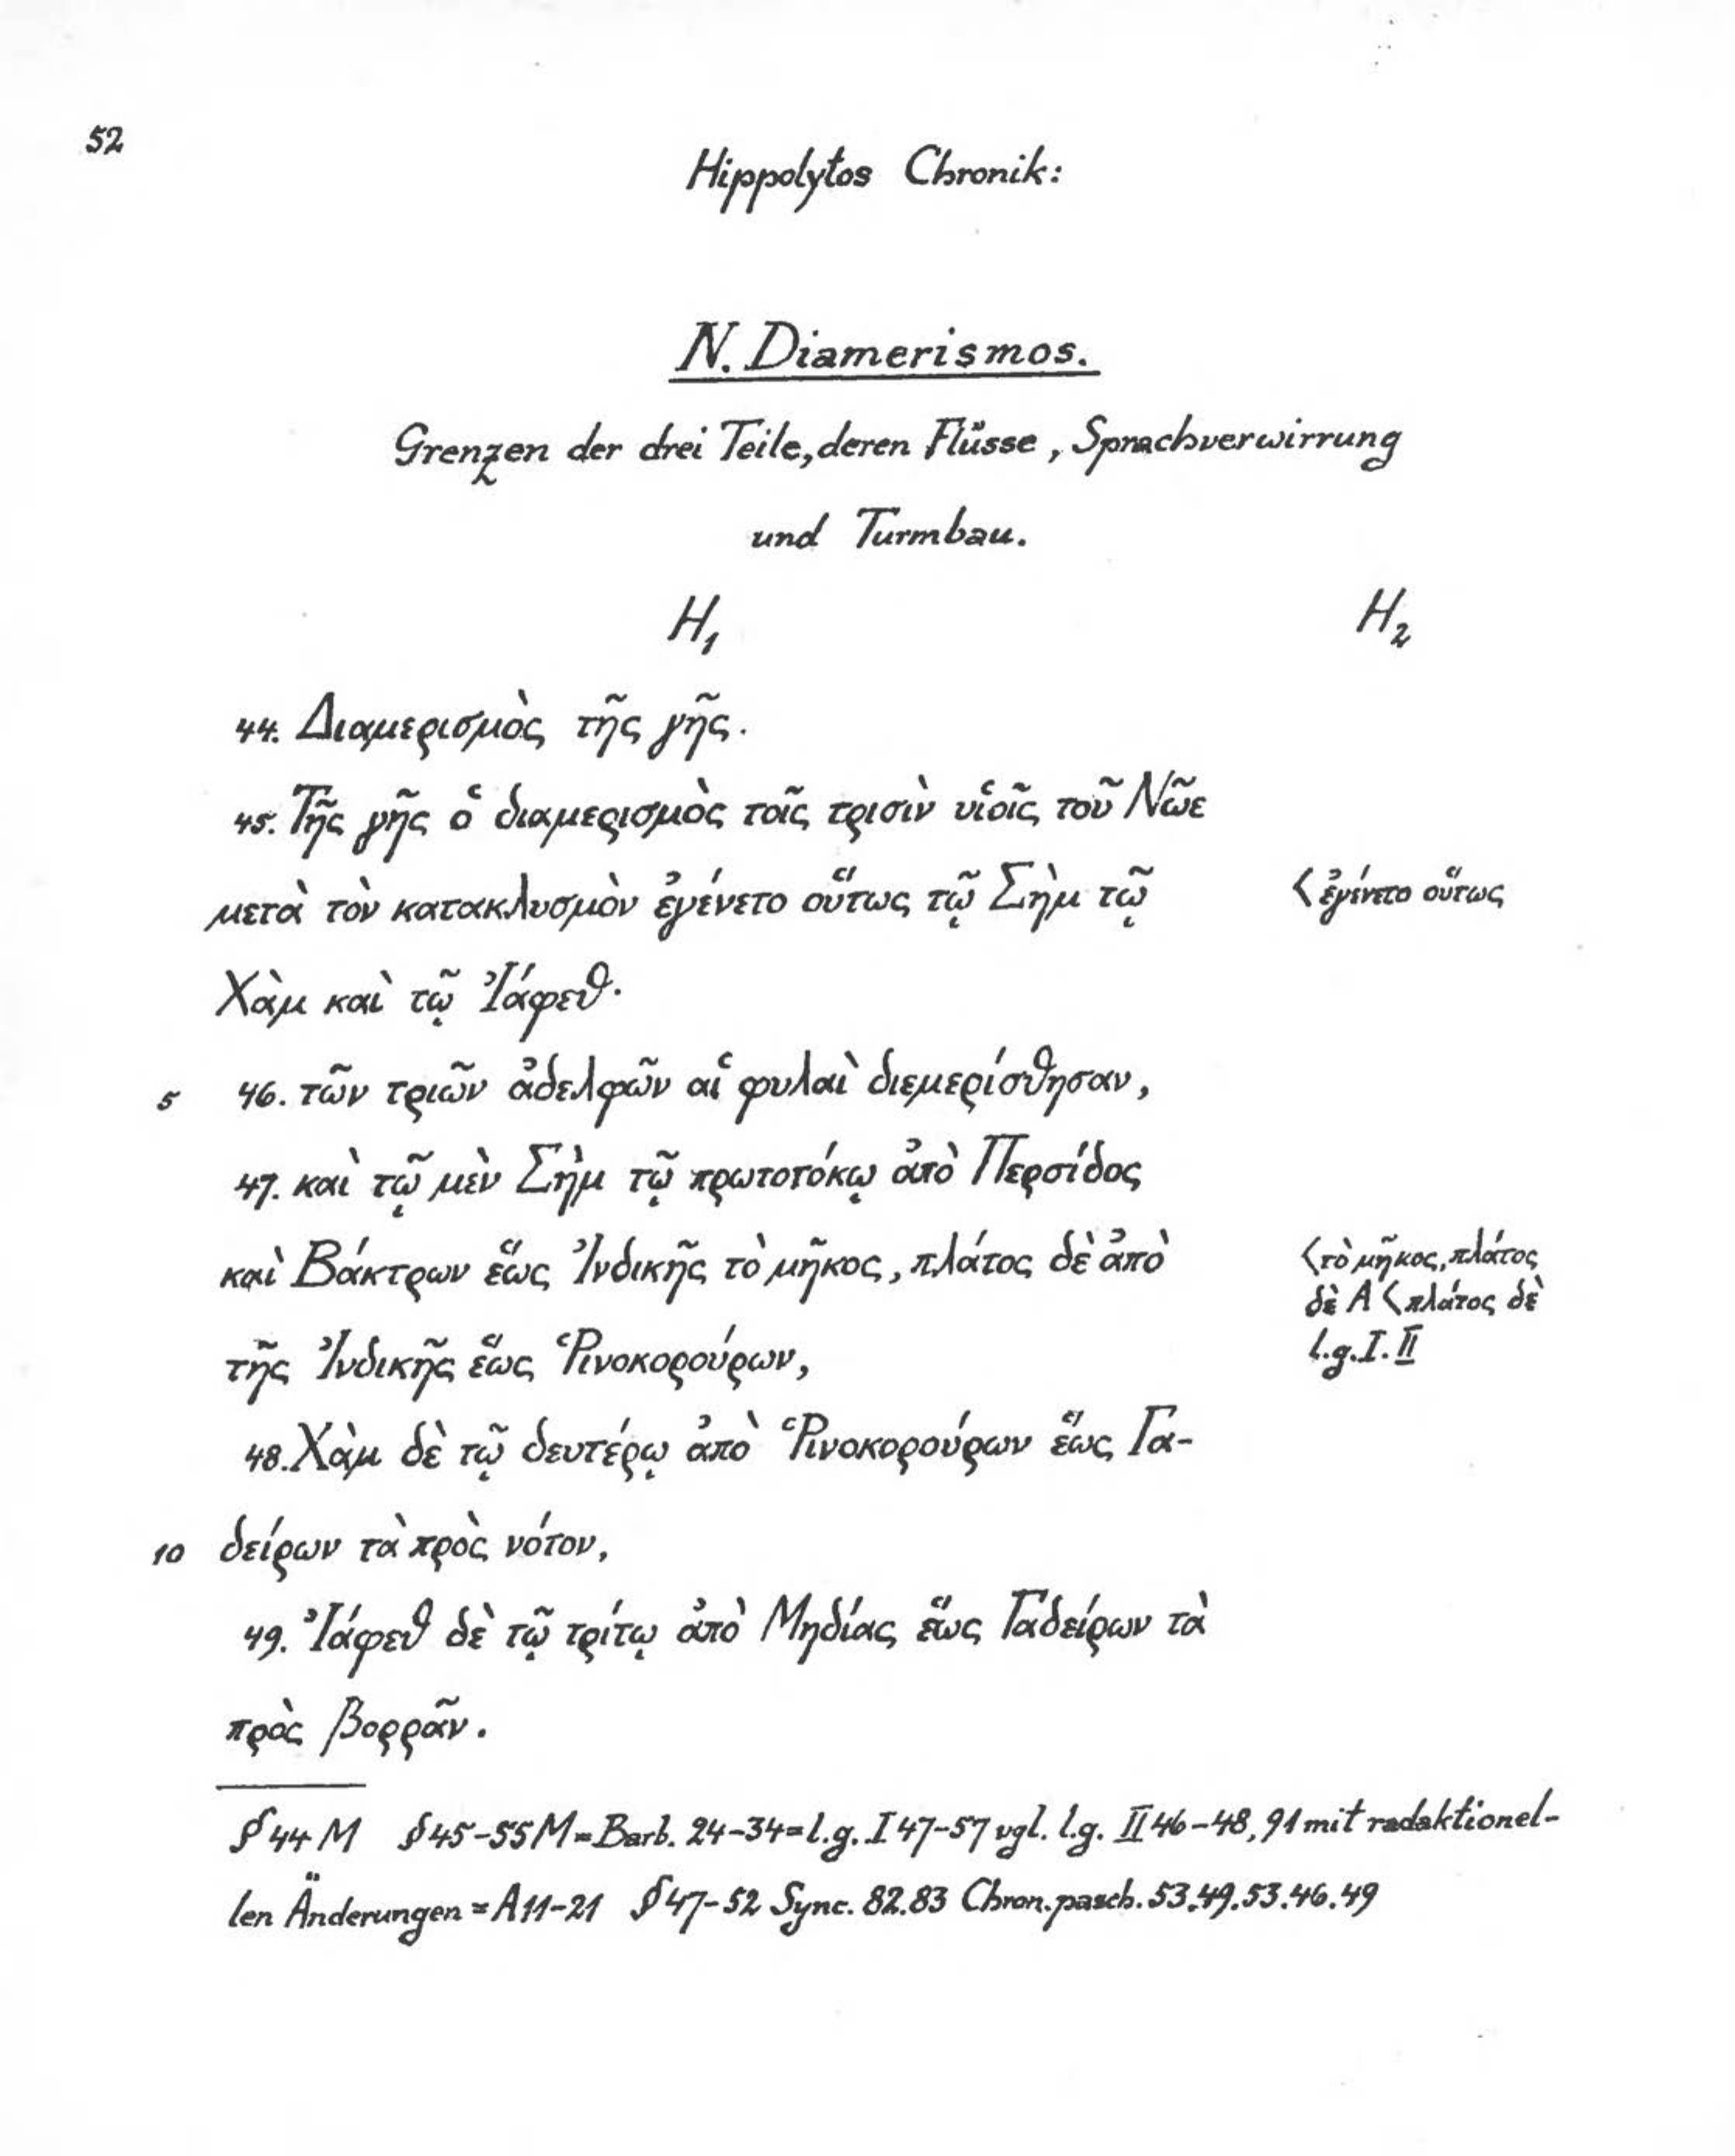 52
Hippolytos Chronik:
N. Diamerismos.
Grenzen der drei Teile, deren Flüsse, Sprachverwirrung
und Turmbau.
H₁ H₂
44. Διαμερισμὸς τῆς γῆς.
45. Τῆς γῆς ὁ διαμερισμὸς τοῖς τρισὶν υἱοῖς τοῦ Νῶε
μετὰ τὸν κατακλυσμὸν ἐγένετο οὕτως τῷ Σὴμ τῷ
< ἐγένετο οὕτως
Χὰμ καὶ τῷ Ἰάφεθ·
5 46. τῶν τριῶν ἀδελφῶν αἱ φυλαὶ διεμερίσθησαν,
47. καὶ τῷ μὲν Σὴμ τῷ πρωτοτόκῳ ἀπὸ Περσίδος
καὶ Βάκτρων ἕως Ἰνδικῆς τὸ μῆκος, πλάτος δὲ ἀπὸ
< τὸ μῆκος, πλάτος
δὲ A < πλάτος δὲ
l.g. I. II
τῆς Ἰνδικῆς ἕως Ῥινοκορούρων,
48. Χὰμ δὲ τῷ δευτέρῳ ἀπὸ Ῥινοκορούρων ἕως Γα-
10 δείρων τὰ πρὸς νότον,
49. Ἰάφεθ δὲ τῷ τρίτῳ ἀπὸ Μηδίας ἕως Γαδείρων τὰ
πρὸς βορρᾶν.
§ 44 M § 45-55 M = Barb. 24-34 = l.g. I 47-57 vgl. l.g. II 46-48, 91 mit redaktionel-
len Änderungen = A 11-21 § 47-52 Sync. 82.83 Chron. pasch. 53.49.53.46.49